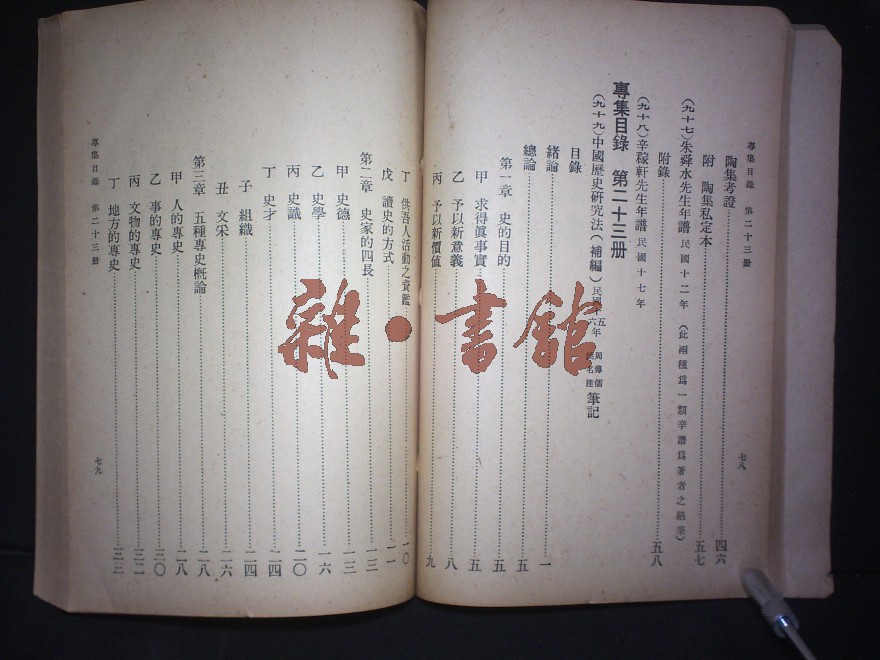 專集目錄 第二十三册
七八
陶集考證 四六
附 陶集私定本 五七
(九十七)朱舜水先生年譜 民國十二年 (此兩種爲一類辛譜爲著者之絕筆)
附錄 五八
(九十八)辛稼軒先生年譜 民國十七年
專集目錄 第二十三册
(九十九)中國歷史研究法(補編) 民國十五六年 周傳儒 名達 筆記
目錄
緒論 一
總論 五
第一章 史的目的 五
甲 求得眞事實 五
乙 予以新意義 八
丙 予以新價值 九
丁 供吾人活動之資鑑 一〇
戊 讀史的方式 一一
第二章 史家的四長 一三
甲 史德 一三
乙 史學 一六
丙 史識 二〇
丁 史才 二四
子 組織 二四
丑 文采 二六
第三章 五種專史槪論 二八
甲 人的專史 二八
乙 事的專史 三〇
丙 文物的專史 三二
丁 地方的專史 三三
專集目錄 第二十三册
七九
雜·書館